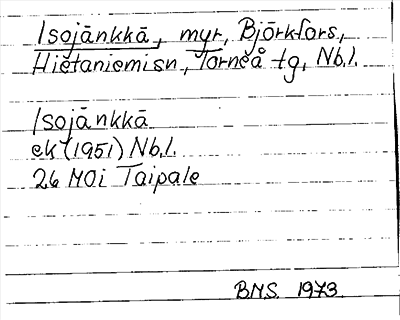 Isojänkkä, myr, Björkfors,
Hietaniemi sn, Torneå tg, Nb.l.
Isojänkkä
ek (1951) Nb.l.
26 M0i Taipale
BNS. 1973